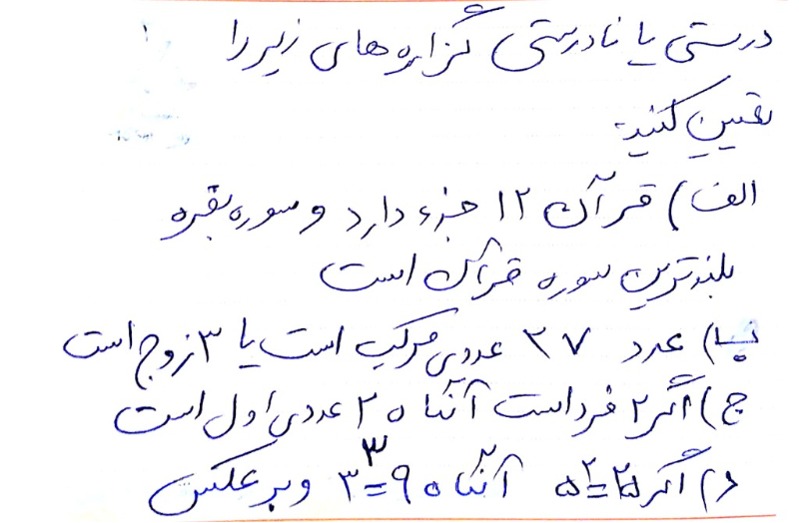 درستی یا نادرستی گزاره های زیر را
تعیین کنید:
الف) قرآن ۱۲ جزء دارد و سوره بقره
بلندترین سوره قرآن است
ب) عدد ۲۷ عددی مرکب است یا ۳ زوج است
ج) اگر ۲ فرد است آنگاه ۲ عددی اول است
د) اگر ۵²=۲۵ آنگاه ۳³=۹² و برعکس